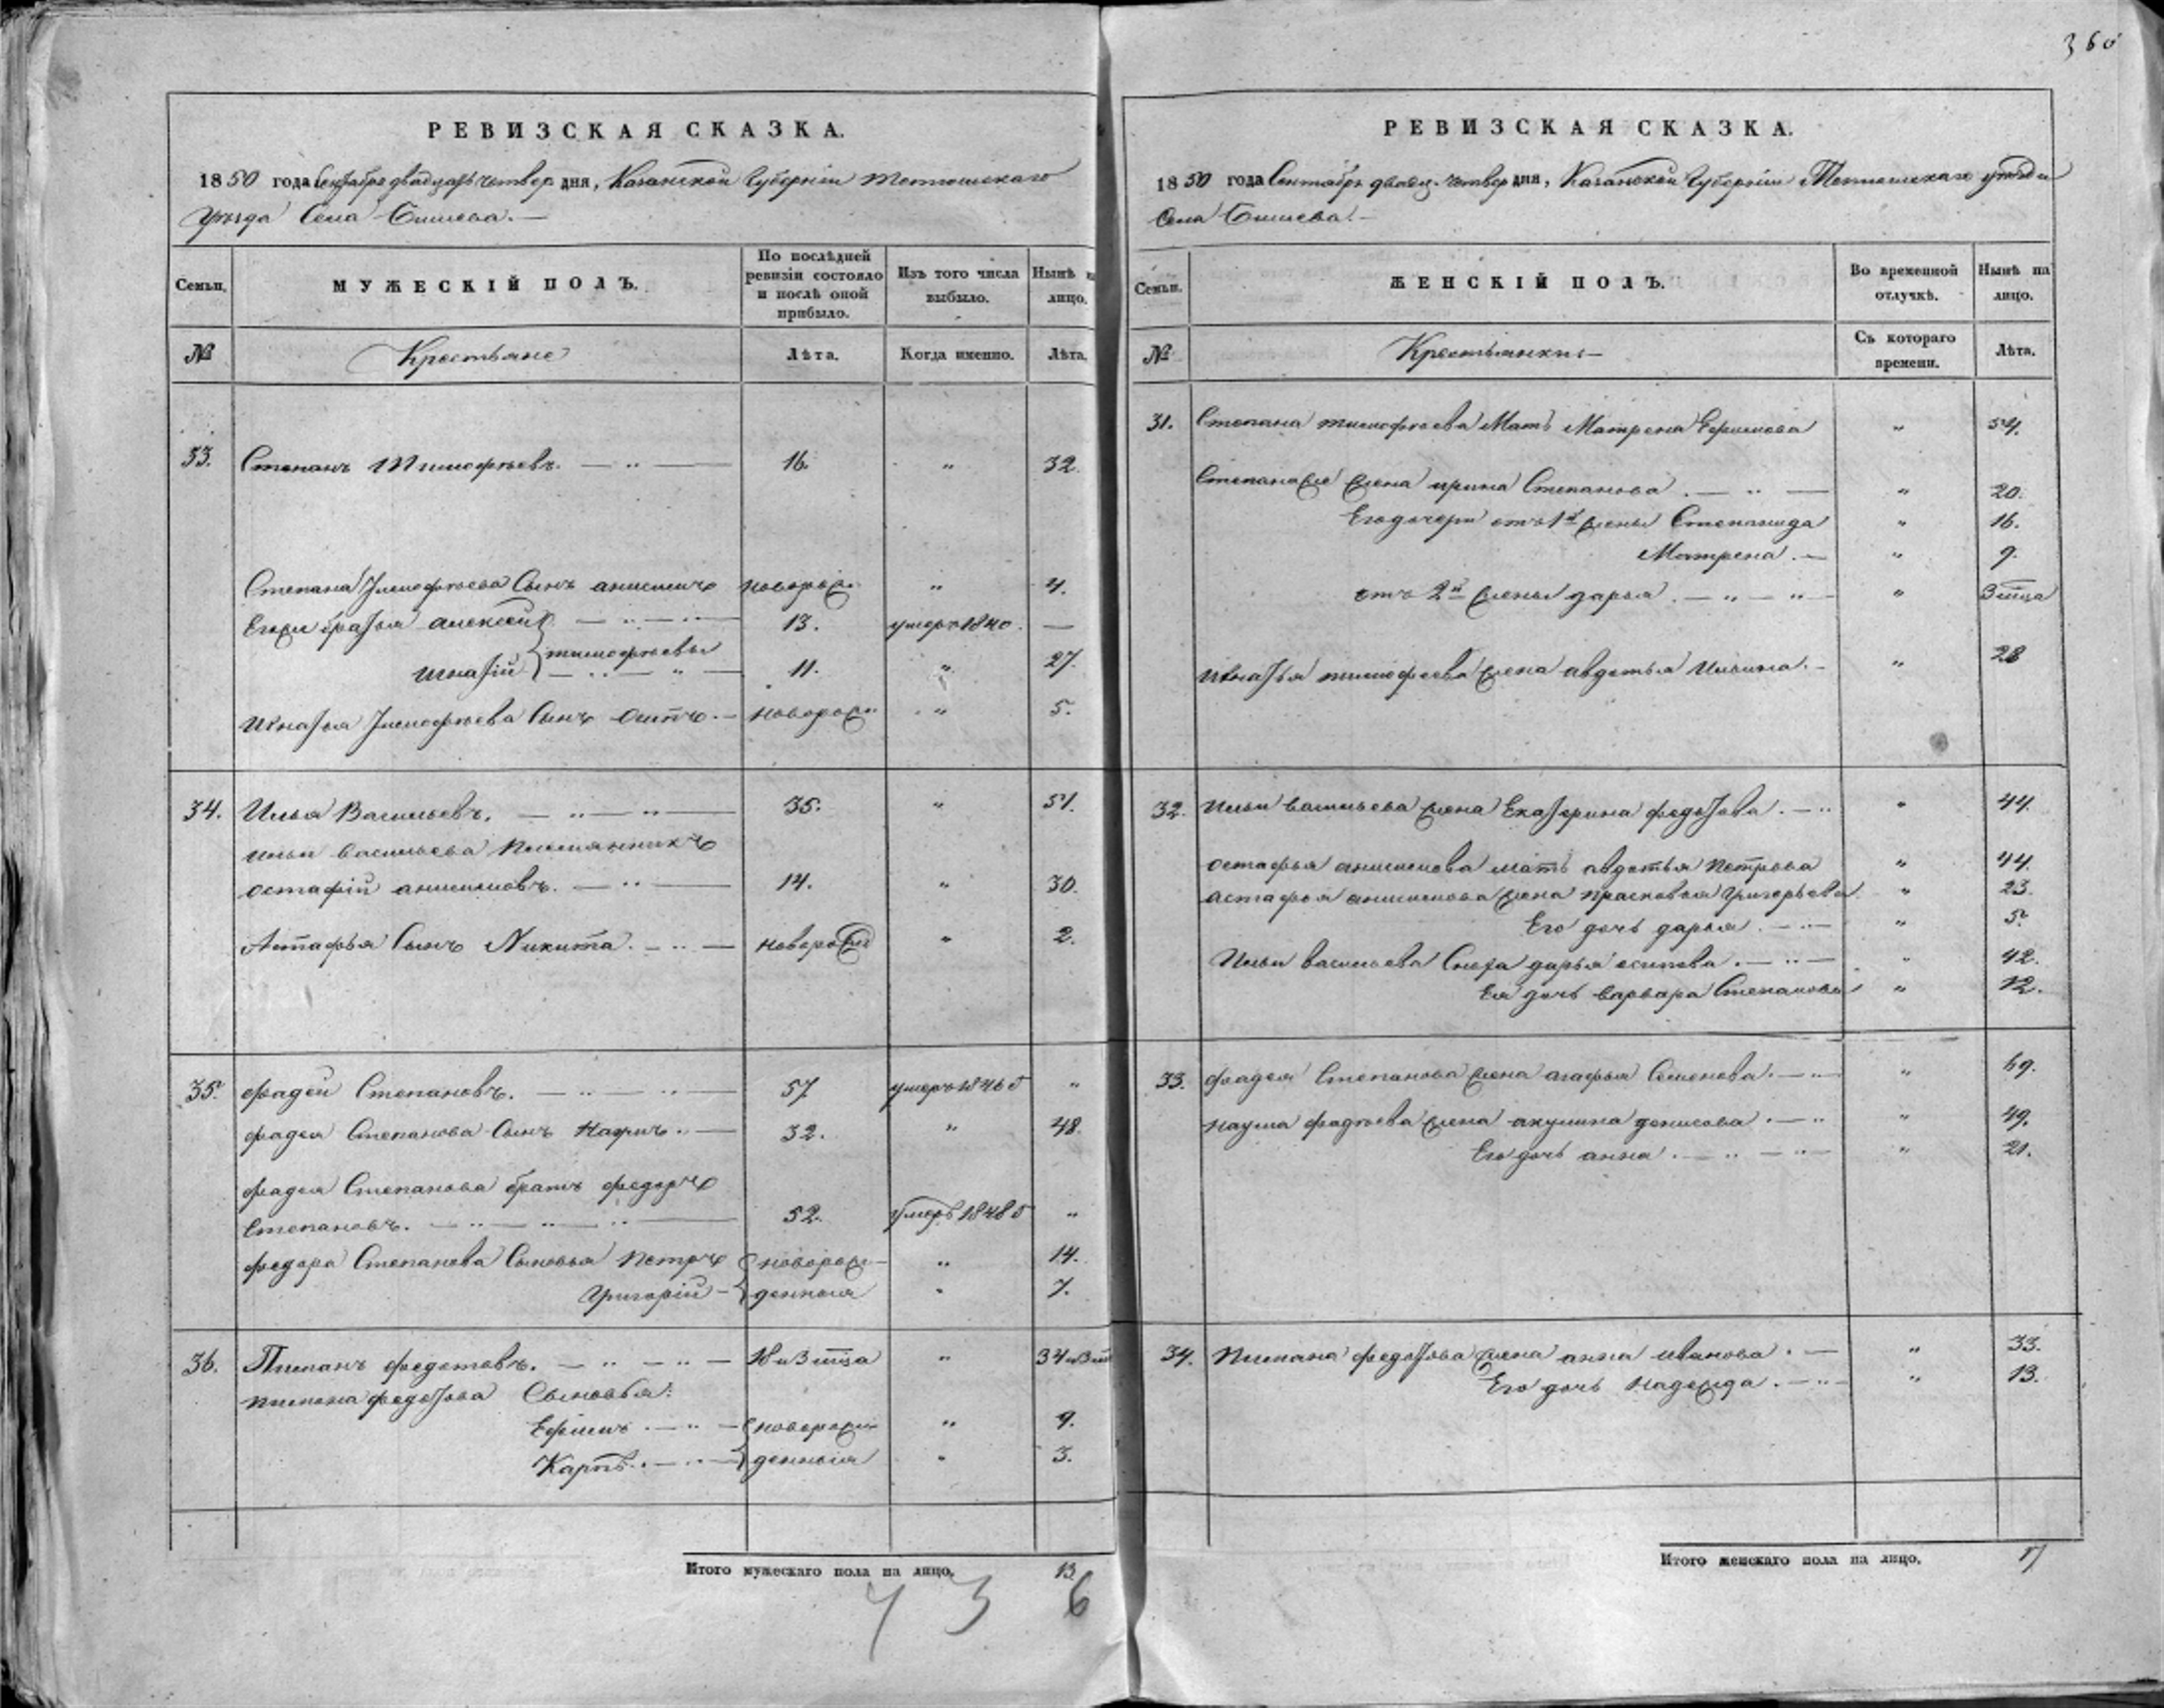 360
РЕВИЗСКАЯ СКАЗКА.
1850 года Сентября двадцать четвер дня, Казанской Губернiи Тетюшскаго
Уѣзда Села
Семьи.
МУЖЕСКІЙ ПОЛЪ.
По послѣдней ревизіи состояло и послѣ оной прибыло.
Изъ того числа выбыло.
Нынѣ на лицо.
№
Крестьяне
Лѣта.
Когда именно.
Лѣта.
33. Степанъ Тимофѣевъ. 16. " 32.
Степана Тимофѣева Сынъ анисимъ новорож. " 4.
Егоже братья алексей 13. умеръ 1840. —
игнатiй } тимофѣевы 11. " 27.
Игнатья Тимофѣева Сынъ Осипъ. новорож. " 5.
34. Илья Васильевъ. 35. " 51.
ильи васильева племянникъ
остафiй анисимовъ. 14. " 30.
Астафья Сынъ Никита. новорож " 2.
35. фадей Степановъ. 57 умеръ 1846 "
фадея Степанова Сынъ Наумъ. 32. " 48.
фадея Степанова братъ федоръ
Степановъ. 52. Умеръ 1848 "
федора Степанова Сыновья Петръ } новорож- " 14.
Григорiй } денныя " 7.
36. Пиманъ федотовъ. 18 и 3 мца " 34 и 3 м
пимана федотова Сыновья:
Ефимъ } новорож- " 9.
Карпъ. } денныя " 3.
Итого мужескаго пола на лицо. 13
436
РЕВИЗСКАЯ СКАЗКА.
1850 года Сентября двадц. четвер дня, Казанской Губернiи Тетюшскаго уѣзда
Села
Семьи.
ЖЕНСКІЙ ПОЛЪ.
Во временной отлучкѣ.
Нынѣ на лицо.
№
Крестьянки
Съ котораго времени.
Лѣта.
31. Степана тимофѣева Мать Матрена Ефимова " 54.
Степана же жена ирина Степанова. " 20.
Его дочери отъ 1й жены Степанида " 16.
Матрена. " 9.
отъ 2й жены дарья. " 3 мца
Игнатья тимофеева жена авдотья Ильина. " 28
32. Ильи васильева жена Екатерина федотова. " 44.
остафья анисимова мать авдотья петрова " 44.
астафья анисимова жена прасковья Григорьева " 23.
Его дочь дарья. " 5.
Ильи васильева Сноха дарья осипова. " 42.
Ея дочь варвара Степанова " 12.
33. фадея Степанова жена агафья Семенова. " 69.
наума фадѣева жена акулина денисова. " 49.
Его дочь анна. " 21.
34. Пимана федотова жена анна иванова. " 33.
Его дочь надежда. " 13.
Итого женскаго пола на лицо. 17